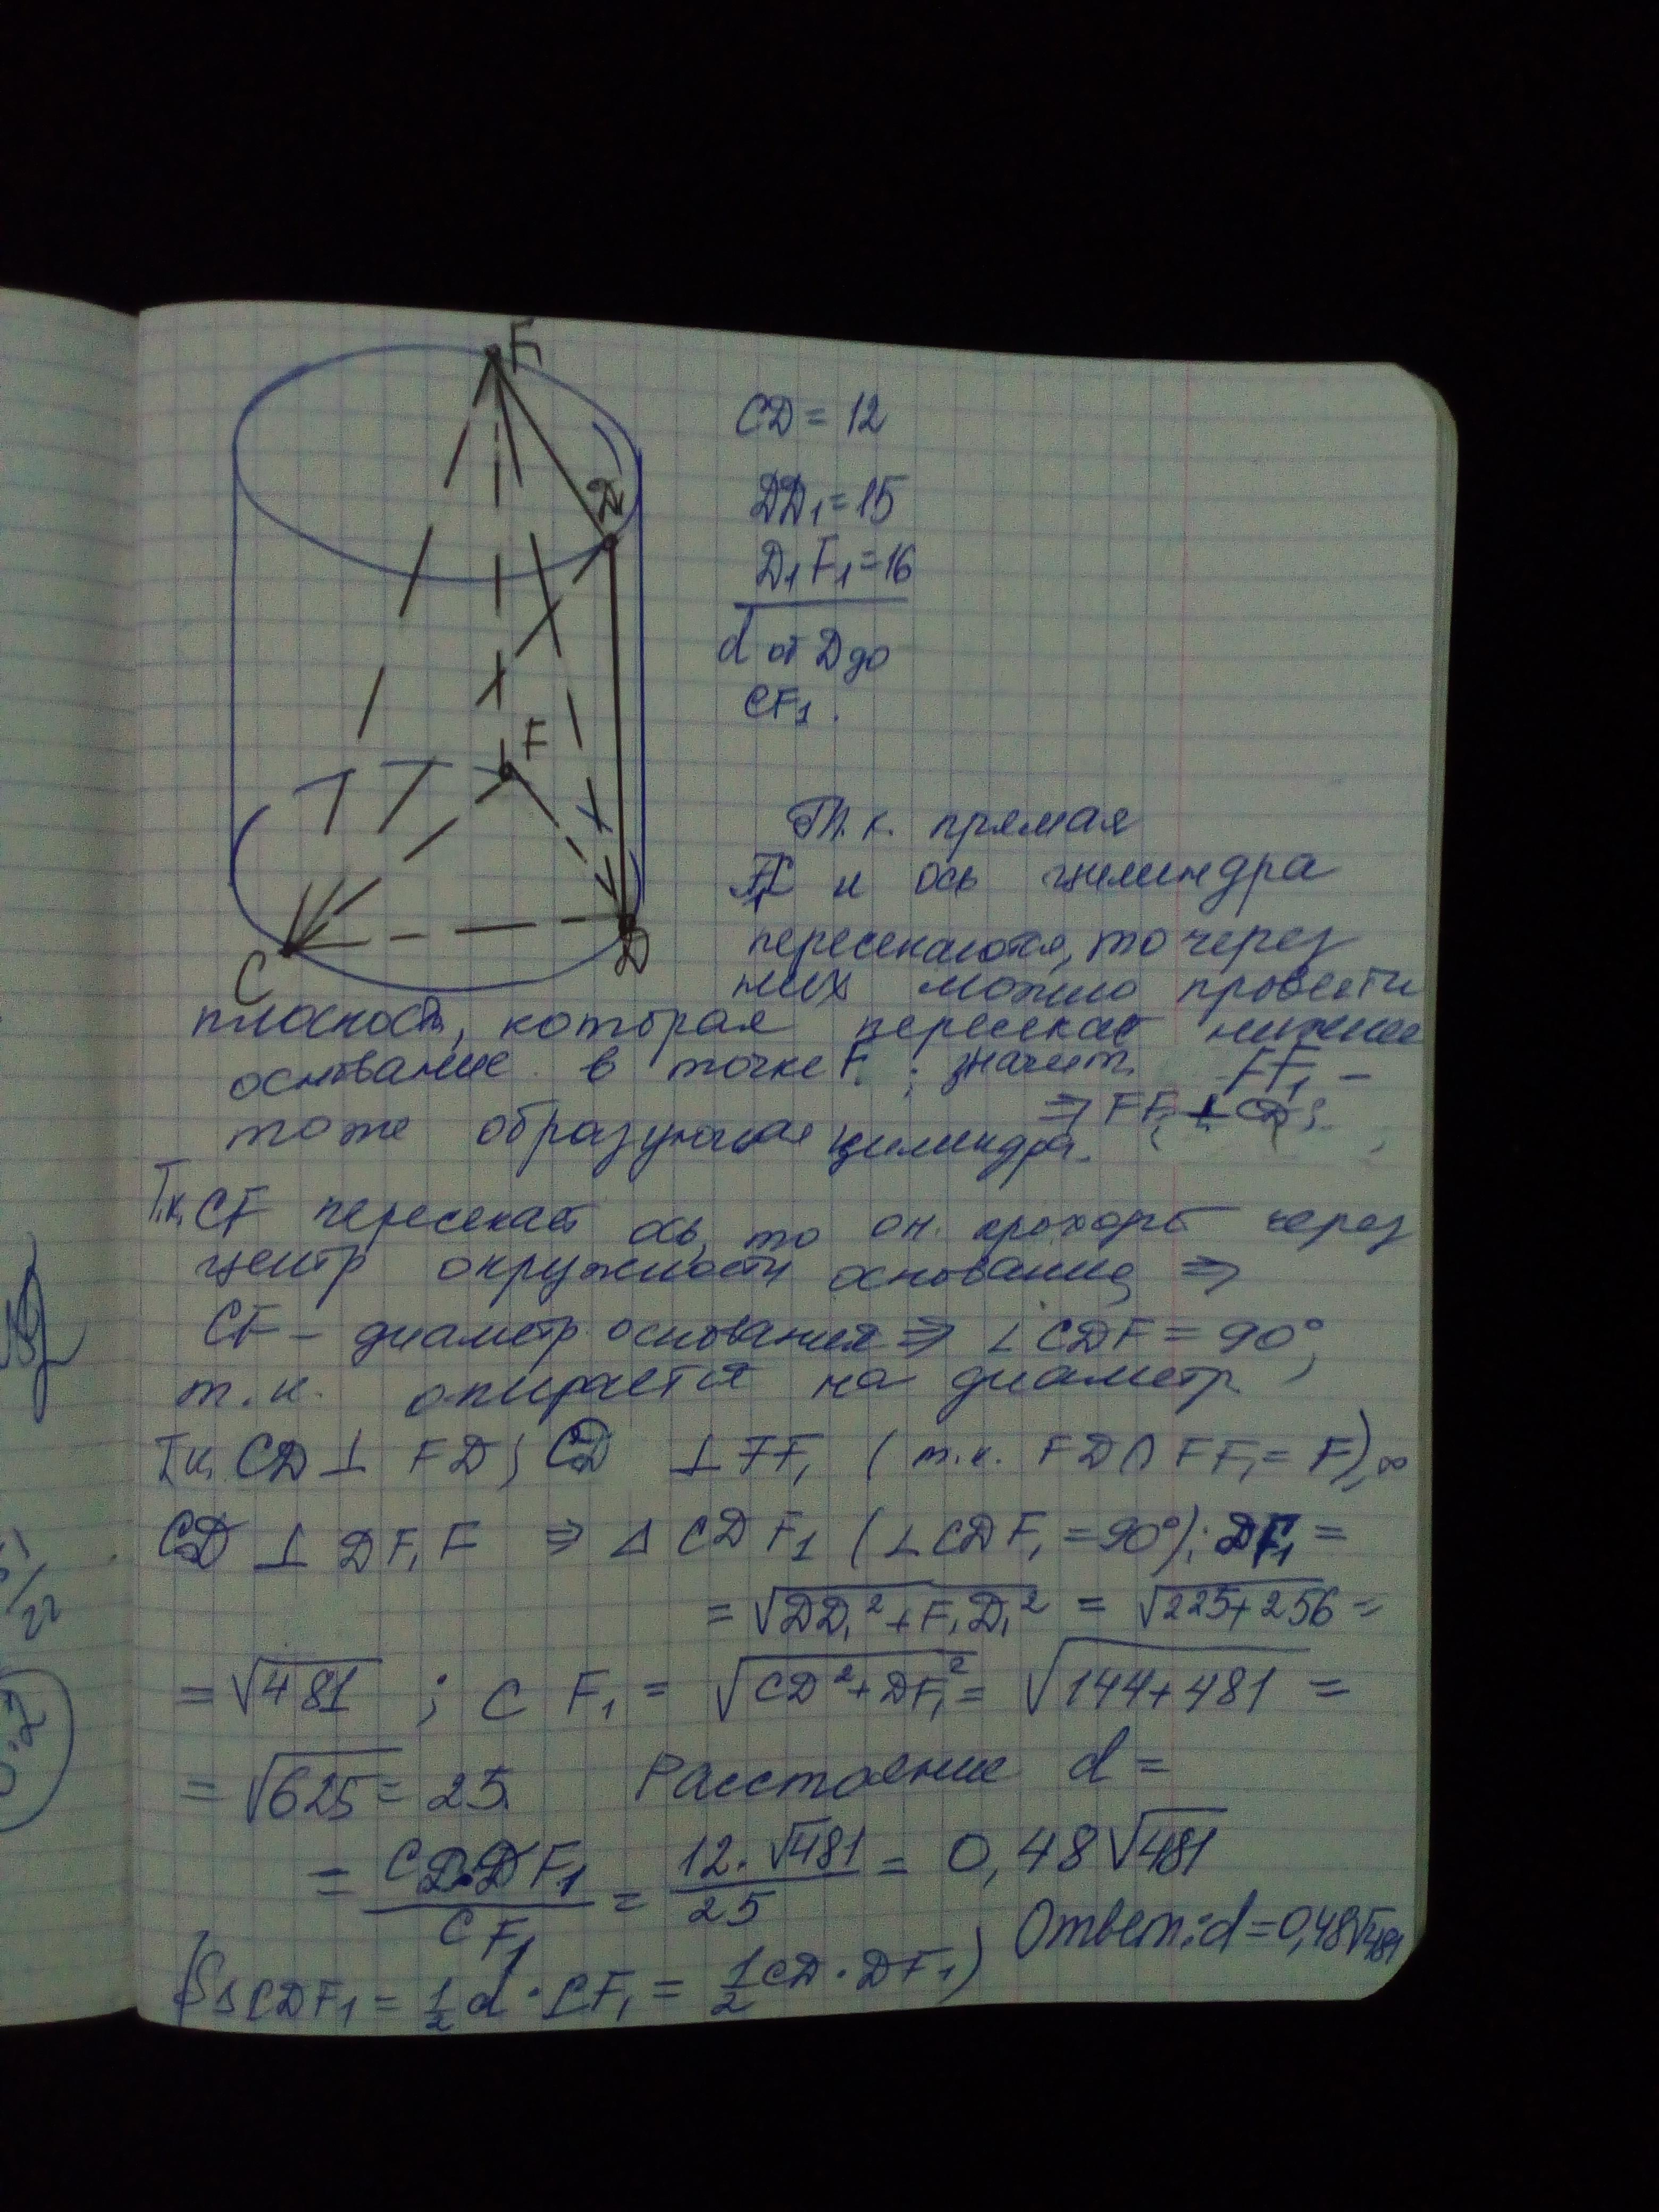 F₁
D₁
F
C
D
CD = 12
DD₁ = 15
D₁F₁ = 16
d от D до
CF₁.
Т.к. прямая
F₁C и ось цилиндра
пересекаются, то через
них можно провести
плоскость, которая пересекает нижнее
основание в точке F; значит FF₁ –
⇒ FF₁ ⊥ CD;
тоже образующая цилиндра.
Т.к. CF пересекает ось, то он. проходит через
центр окружности основания ⇒
CF – диаметр основания ⇒ ∠CDF = 90°,
т.к. опирается на диаметр
Т.к. CD ⊥ FD; CD ⊥ FF₁ (т.к. FD ∩ FF₁ = F), то
CD ⊥ DF₁F ⇒ △CDF₁ (∠CDF₁ = 90°); DF₁ =
= √(DD₁² + F₁D₁²) = √(225+256) =
= √481 ; CF₁ = √(CD² + DF₁²) = √(144+481) =
= √625 = 25. Расстояние d =
= (CD·DF₁)/(CF₁) = (12·√481)/25 = 0,48√481
(S△CDF₁ = 1/2 d · CF₁ = 1/2 CD · DF₁)
Ответ: d = 0,48√481